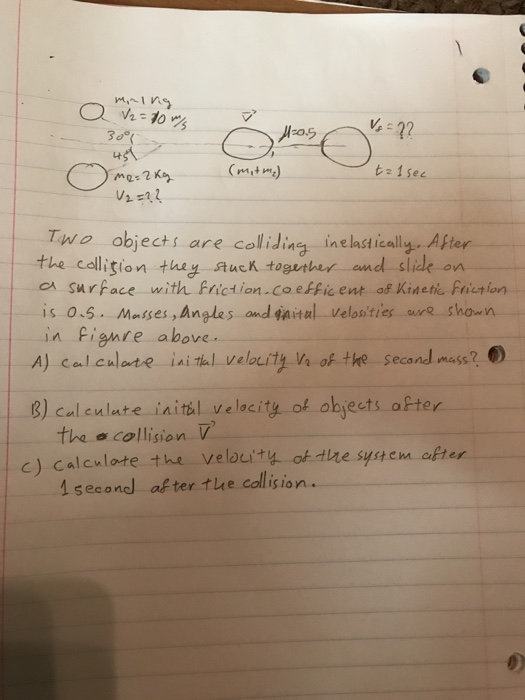 m₁=1kg
V₂ = 10 m/s
30°
45°
m₂ = 2 kg
V₂ = ??
V⃗
(m₁+m₂)
μ=0.5
V₂ = ??
t = 1 sec
Two objects are colliding inelastically. After
the collition they stuck together and slide on
a surface with friction. coefficent of Kinetic friction
is 0.5. Masses, Angles and inital velosities are shown
in figure above.
A) calculate initial velocity V₂ of the second mass?
B) calculate initial velocity of objects after
the collision V⃗
C) calculate the velocity of the system after
1 second after the collision.